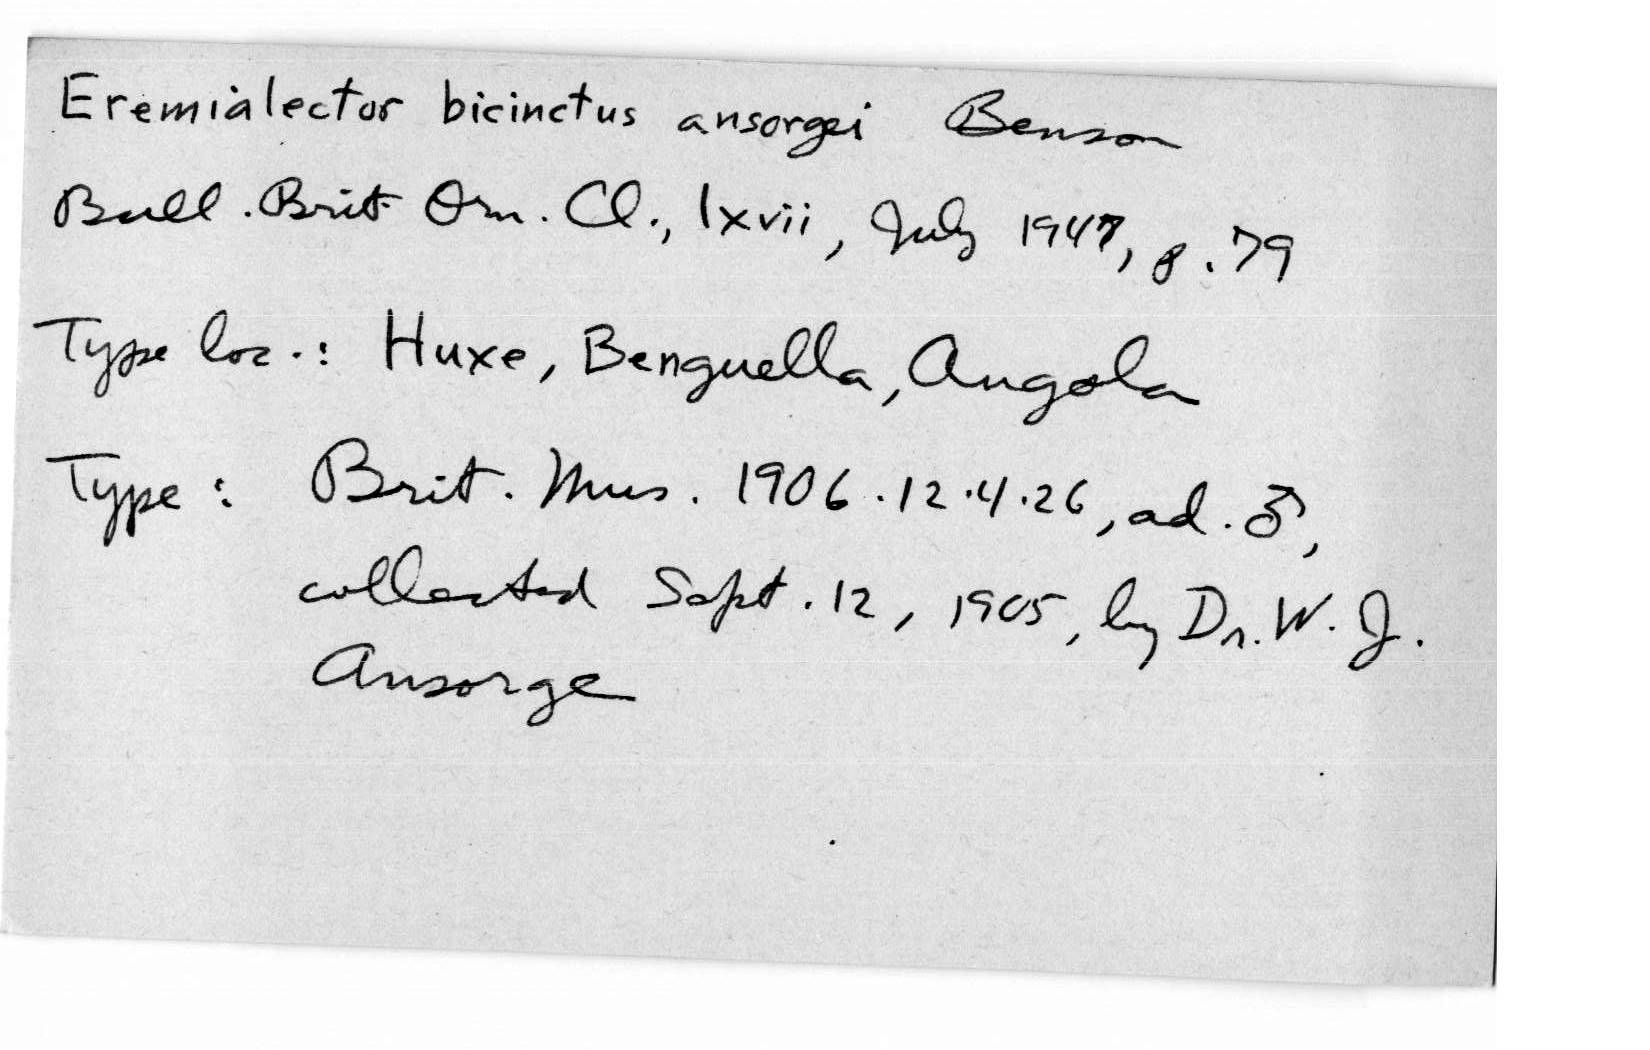 Eremialector bicinctus ansorgei Benson
Bull. Brit. Orn. Cl., lxvii, July 1947, p. 79
Type loc.: Huxe, Benguella, Angola
Type: Brit. Mus. 1906.12.4.26, ad. ♂,
collected Sept. 12, 1905, by Dr. W. J.
Ansorge